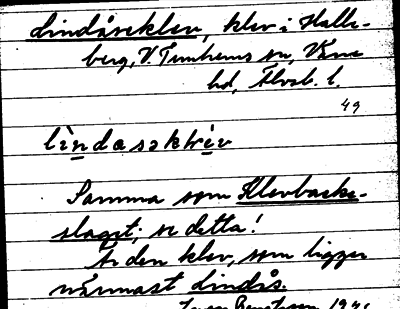 Lindåseklev, klev i Halle-
berg, V. Tunhems sn, Väne
hd, Älvsb. l.
49
lìndasəklèv
Samma som Klevbacke-
slaget; se detta!
Är den klev, som ligger
närmast Lindås.